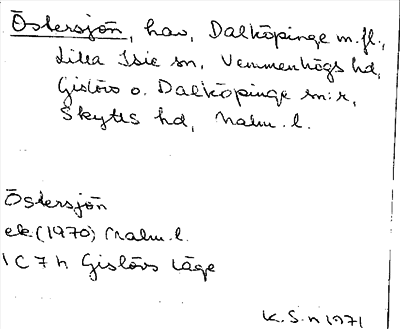 Östersjön, hav, Dalköpinge m.fl.,
Lilla Isie sn, Vemmenhögs hd,
Gislöv o. Dalköpinge sn:r,
Skytts hd, Malm. l.
Östersjön
ek. (1970) Malm. l.
1 C 7 h Gislövs läge
K.S.n 1971